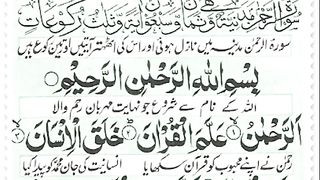 سورة الرحمن مدنية وهي ثمان وسبعون اية وثلث ركوعات
سورۃ الرحمٰن مدینہ میں نازل ہوئی اور اس کی اٹھتر آیتیں اور تین رکوع ہیں
بِسْمِ اللهِ الرَّحْمٰنِ الرَّحِيْمِ
اللہ کے نام سے شروع جو نہایت مہربان رحم والا
اَلرَّحْمٰنُ ۙ﴿۱﴾ عَلَّمَ الْقُرْاٰنَ ؕ﴿۲﴾ خَلَقَ الْاِنْسَانَ ۙ﴿۳﴾
رحمٰن نے اپنے محبوب کو قرآن سکھایا انسانیت کی جان محمد کو پیدا کیا